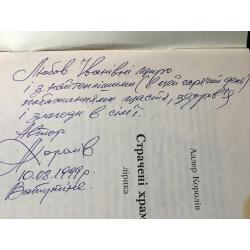 Любов Іванівні щиро
і з найтеплішими (в цей гарячий день)
побажаннями щастя, здоров'я
і злагоди в сім'ї.
Автор
Королів
10.08.1999р.
Ватутіне.
Адлер Королів
Страчені храм
лірика